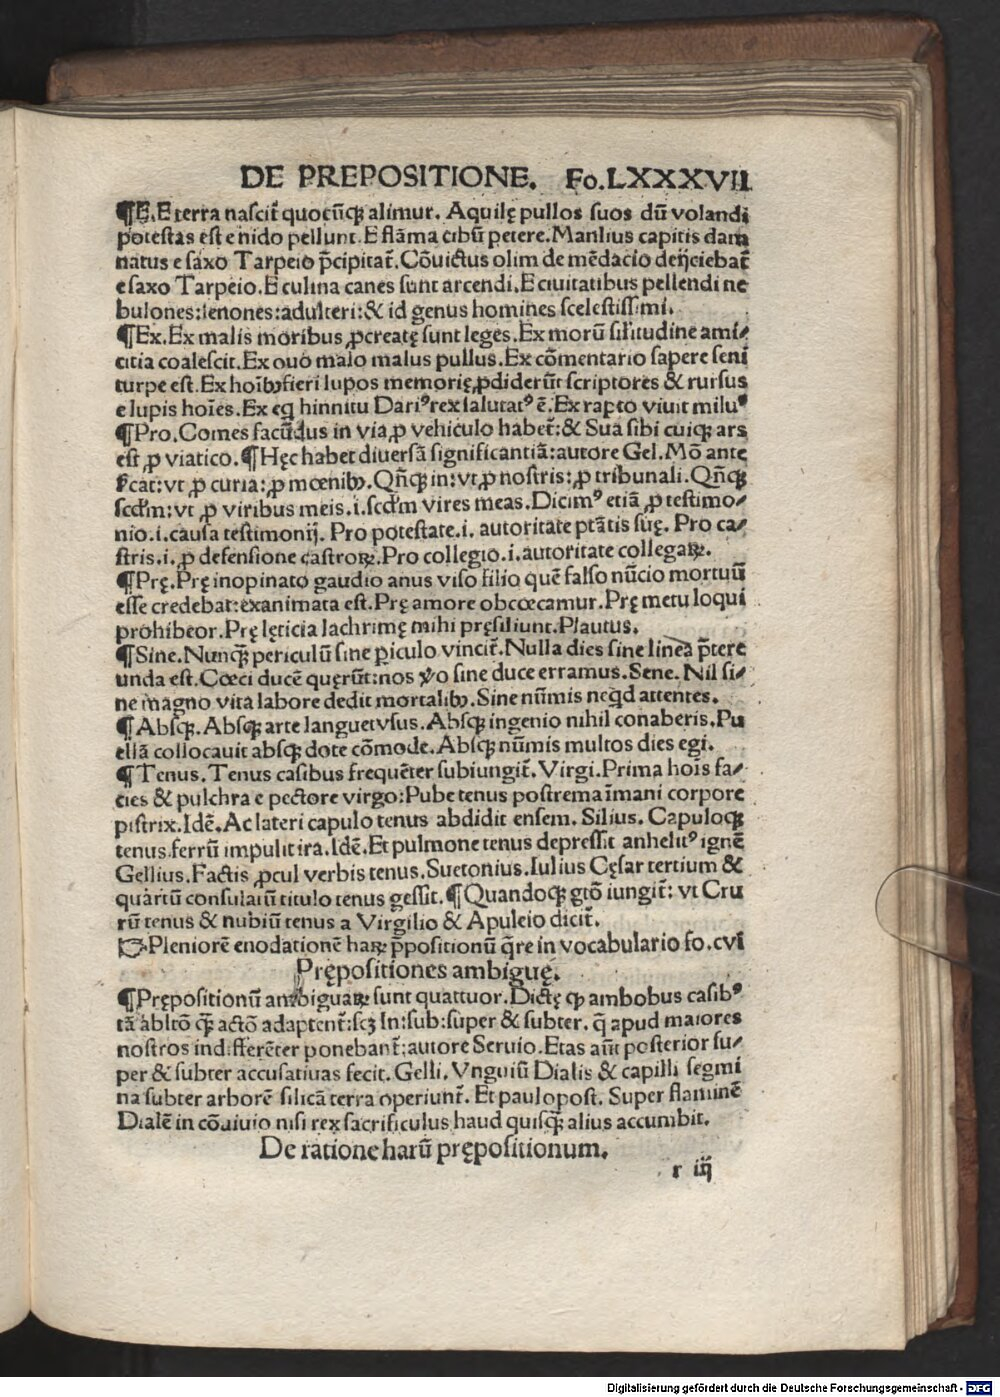 DE PREPOSITIONE. Fo.LXXXVII
¶E.E terra nascit̃ quotũq; alimur. Aquilę pullos suos dũ volandi
potestas est e nido pellunt.E flãma cibũ petere.Manlius capitis dam
natus e saxo Tarpeio p̃cipitat̃.Cõuictus olim de mẽdacio deijciebat̃
e saxo Tarpeio.E culina canes sunt arcendi.E ciuitatibus pellendi ne
bulones:lenones:adulteri:& id genus homines scelestissimi.
¶Ex.Ex malis moribus ꝓcreatę sunt leges.Ex morũ sil̃itudine ami/
citia coalescit.Ex ouo malo malus pullus.Ex cõmentario sapere seni
turpe est.Ex hoĩbꝰ fieri lupos memorię ꝓdiderũt scriptores & rursus
e lupis hoĩes.Ex eq̃ hinnitu Dariꝰ rex salutatꝰ ẽ.Ex rapto viuit miluꝰ
¶Pro.Comes facũdus in via ꝓ vehiculo habet̃:& Sua sibi cuiq; ars
est ꝓ viatico.¶Hęc habet diuersã significantiã:autore Gel.Mõ ante
s̃cat:vt ꝓ curia:ꝓ mœnibꝰ.Qñq; in:vt ꝓ nostris:ꝓ tribunali.Qñq;
scd̃m:vt ꝓ viribus meis.i.scd̃m vires meas.Dicimꝰ etiã ꝓ testimo/
nio.i.causa testimonij. Pro potestate.i. autoritate ptãtis suę. Pro ca/
stris.i.ꝓ defensione castroꝝ.Pro collegio.i.autoritate collegaꝝ.
¶Prę.Prę inopinato gaudio anus viso filio quẽ falso nũcio mortuũ
esse credebat:exanimata est.Prę amore obcœcamur.Prę metu loqui
prohibeor.Prę lęticia lachrimę mihi pręsiliunt.Plautus.
¶Sine.Nunq̃ periculũ sine ꝑiculo vincit̃.Nulla dies sine linea p̃tere
unda est.Cœci ducẽ quęrũt:nos ṽo sine duce erramus.Sene. Nil si/
ne magno vita labore dedit mortalibꝰ.Sine nũmis neqd̃ attentes.
¶Absq;.Absq; arte languet vsus.Absq; ingenio nihil conaberis.Pu
ellã collocauit absq; dote cõmode.Absq; nũmis multos dies egi.
¶Tenus.Tenus casibus frequẽter subiungit̃.Virgi.Prima hoĩs fa/
cies & pulchra e pectore virgo:Pube tenus postrema ĩmani corpore
pistrix.Idẽ.Ac lateri capulo tenus abdidit ensem. Silius. Capuloq;
tenus ferrũ impulit ira.Idẽ.Et pulmone tenus depressit anhelitꝰ ignẽ
Gellius.Factis ꝓcul verbis tenus.Suetonius.Iulius Cęsar tertium &
quartũ consulatũ titulo tenus gessit.¶Quandoq; gtõ iungit̃: vt Cru
rũ tenus & nubiũ tenus a Virgilio & Apuleio dicit̃.
☞Pleniorẽ enodationẽ haꝝ p̃positionũ q̃re in vocabulario fo.cvi
Prępositiones ambiguę.
¶Prępositionũ ambiguaꝝ sunt quattuor.Dictę ꝙ ambobus casibꝰ
tã abltõ q̃ actõ adaptent̃:scꝫ In:sub:super & subter. q̃ apud maiores
nostros indifferẽter ponebant̃:autore Seruio.Etas aũt posterior su/
per & subter accusatiuas fecit. Gelli. Vnguiũ Dialis & capilli segmi
na subter arborẽ silicã terra operiunt̃. Et paulopost. Super flaminẽ
Dialẽ in cõuiuio nisi rex sacrificulus haud quisq̃ alius accumbit.
De ratione harũ prępositionum.
r iij
Digitalisierung gefördert durch die Deutsche Forschungsgemeinschaft - DFG